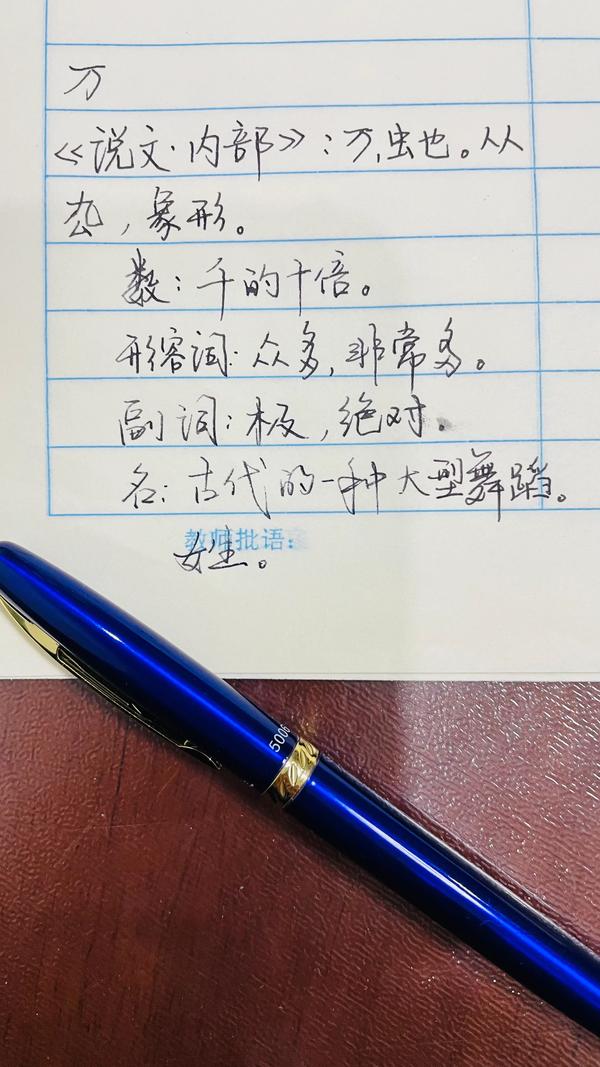 万
《说文·内部》:万,虫也。从
厹,象形。
数:千的十倍。
形容词:众多,非常多。
副词:极,绝对。
名:古代的一种大型舞蹈。
教师批语:
姓。
5006